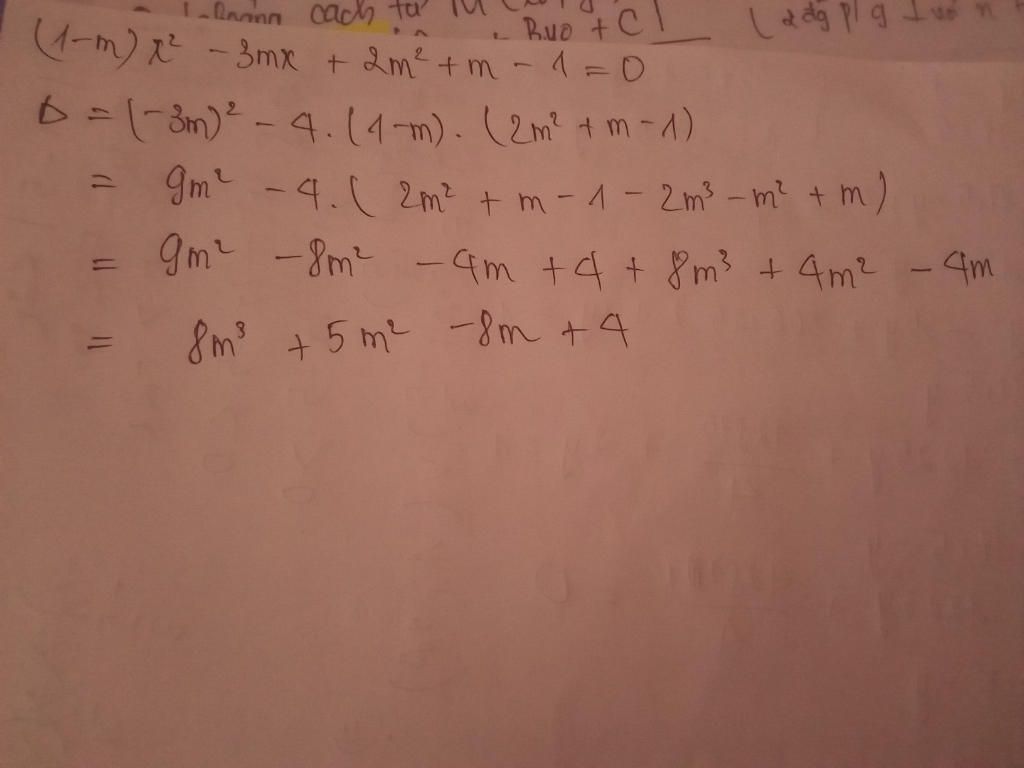 cách từ M
+ C
(1-m) x² - 3mx + 2m² + m - 1 = 0
Δ = (-3m)² - 4. (1-m). (2m² + m - 1)
= 9m² - 4. ( 2m² + m - 1 - 2m³ - m² + m )
= 9m² - 8m² - 4m + 4 + 8m³ + 4m² - 4m
= 8m³ + 5m² - 8m + 4